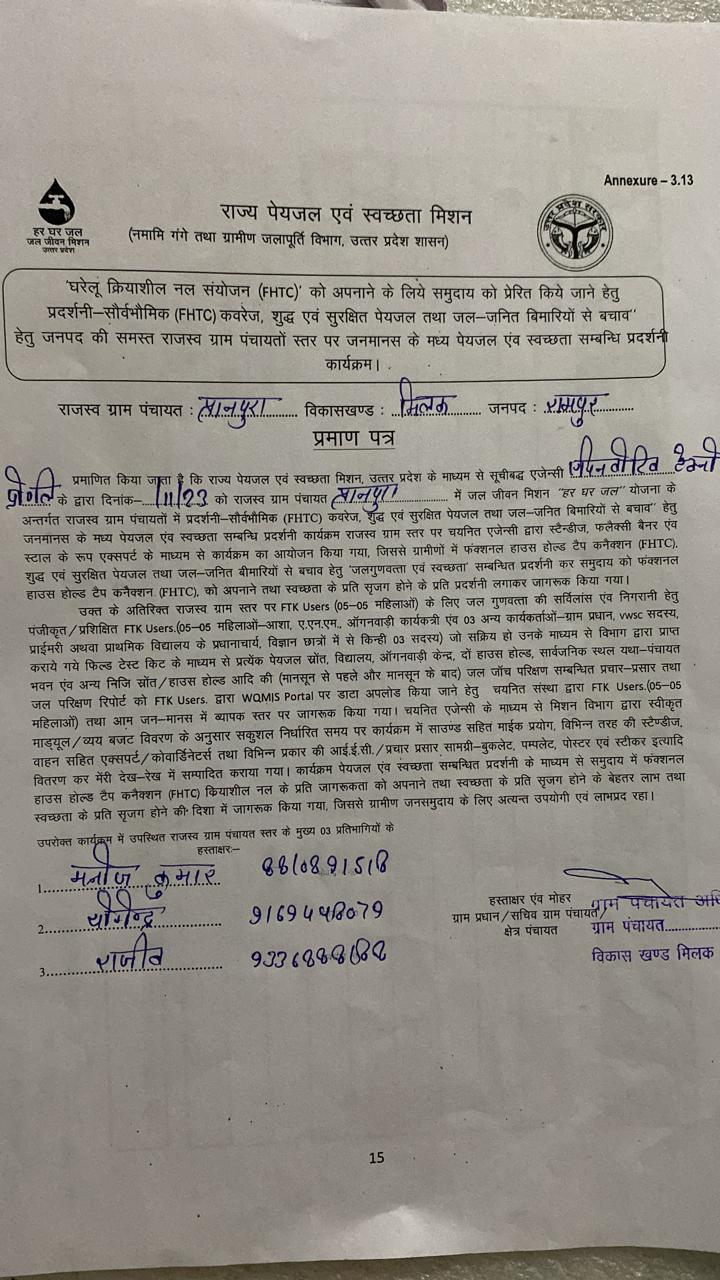 Annexure – 3.13
हर घर जल
जल जीवन मिशन
उत्तर प्रदेश
राज्य पेयजल एवं स्वच्छता मिशन
(नमामि गंगे तथा ग्रामीण जलापूर्ति विभाग, उत्तर प्रदेश शासन)
उत्तर प्रदेश सरकार
'घरेलू क्रियाशील नल संयोजन (FHTC)' को अपनाने के लिये समुदाय को प्रेरित किये जाने हेतु
प्रदर्शनी–सौर्वभौमिक (FHTC) कवरेज, शुद्ध एवं सुरक्षित पेयजल तथा जल–जनित बिमारियों से बचाव"
हेतु जनपद की समस्त राजस्व ग्राम पंचायतों स्तर पर जनमानस के मध्य पेयजल एंव स्वच्छता सम्बन्धि प्रदर्शनी
कार्यक्रम।
राजस्व ग्राम पंचायत : खानपुरा विकासखण्ड : मिलक जनपद : रामपुर
प्रमाण पत्र
प्रमाणित किया जाता है कि राज्य पेयजल एवं स्वच्छता मिशन, उत्तर प्रदेश के माध्यम से सूचीबद्ध एजेन्सी
के द्वारा दिनांक– /11/23 को राजस्व ग्राम पंचायत खानपुरा में जल जीवन मिशन "हर घर जल" योजना के
अन्तर्गत राजस्व ग्राम पंचायतों में प्रदर्शनी–सौर्वभौमिक (FHTC) कवरेज, शुद्ध एवं सुरक्षित पेयजल तथा जल–जनित बिमारियों से बचाव" हेतु
जनमानस के मध्य पेयजल एंव स्वच्छता सम्बन्धि प्रदर्शनी कार्यक्रम राजस्व ग्राम स्तर पर चयनित एजेन्सी द्वारा स्टैन्डीज, फलैक्सी बैनर एंव
स्टाल के रूप एक्सपर्ट के माध्यम से कार्यक्रम का आयोजन किया गया, जिससे ग्रामीणों में फंक्शनल हाउस होल्ड टैप कनैक्शन (FHTC),
शुद्ध एवं सुरक्षित पेयजल तथा जल–जनित बीमारियों से बचाव हेतु 'जलगुणवत्ता एवं स्वच्छता' सम्बन्धित प्रदर्शनी कर समुदाय को फंक्शनल
हाउस होल्ड टैप कनैक्शन (FHTC), को अपनाने तथा स्वच्छता के प्रति सृजग होने के प्रति प्रदर्शनी लगाकर जागरूक किया गया।
उक्त के अतिरिक्त राजस्व ग्राम स्तर पर FTK Users (05–05 महिलाओं) के लिए जल गुणवत्ता की सर्विलांस एंव निगरानी हेतु
पंजीकृत/प्रशिक्षित FTK Users.(05–05 महिलाओं–आशा, ए.एन.एम., ऑगनवाड़ी कार्यकत्री एंव 03 अन्य कार्यकर्ताओं–ग्राम प्रधान, vwsc सदस्य,
प्राईमरी अथवा प्राथमिक विद्यालय के प्रधानाचार्य, विज्ञान छात्रों में से किन्ही 03 सदस्य) जो सक्रिय हो उनके माध्यम से विभाग द्वारा प्राप्त
कराये गये फिल्ड टेस्ट किट के माध्यम से प्रत्येक पेयजल स्रोंत, विद्यालय, ऑगनवाड़ी केन्द्र, दों हाउस होल्ड, सार्वजनिक स्थल यथा–पंचायत
भवन एंव अन्य निजि स्रोंत/हाउस होल्ड आदि की (मानसून से पहले और मानसून के बाद) जल जॉच परिक्षण सम्बन्धित प्रचार–प्रसार तथा
जल परिक्षण रिपोर्ट को FTK Users. द्वारा WQMIS Portal पर डाटा अपलोड किया जाने हेतु चयनित संस्था द्वारा FTK Users.(05–05
महिलाओं) तथा आम जन–मानस में ब्यापक स्तर पर जागरूक किया गया। चयनित एजेन्सी के माध्यम से मिशन विभाग द्वारा स्वीकृत
माड्यूल/व्यय बजट विवरण के अनुसार सकुशल निर्धारित समय पर कार्यक्रम में साउण्ड सहित माईक प्रयोग, विभिन्न तरह की स्टैण्डीज,
वाहन सहित एक्सपर्ट/कोवार्डिनेटर्स तथा विभिन्न प्रकार की आई.ई.सी./प्रचार प्रसार सामग्री–बुकलेट, पम्पलेट, पोस्टर एवं स्टीकर इत्यादि
वितरण कर मेंरी देख–रेख में सम्पादित कराया गया। कार्यक्रम पेयजल एंव स्वच्छता सम्बन्धित प्रदर्शनी के माध्यम से समुदाय में फंक्शनल
हाउस होल्ड टैप कनैक्शन (FHTC) क्रियाशील नल के प्रति जागरूकता को अपनाने तथा स्वच्छता के प्रति सृजग होने के बेहतर लाभ तथा
स्वच्छता के प्रति सृजग होने की दिशा में जागरूक किया गया, जिससे ग्रामीण जनसमुदाय के लिए अत्यन्त उपयोगी एवं लाभप्रद रहा।
उपरोक्त कार्यक्रम में उपस्थित राजस्व ग्राम पंचायत स्तर के मुख्य 03 प्रतिभागियों के
हस्ताक्षर:–
1. मनोज कुमार
2. योगेन्द्र 9169448079
3. राजीव
हस्ताक्षर एंव मोहर
ग्राम प्रधान/सचिव ग्राम पंचायत/
क्षेत्र पंचायत
ग्राम पंचायत
ग्राम पंचायत
विकास खण्ड मिलक
15